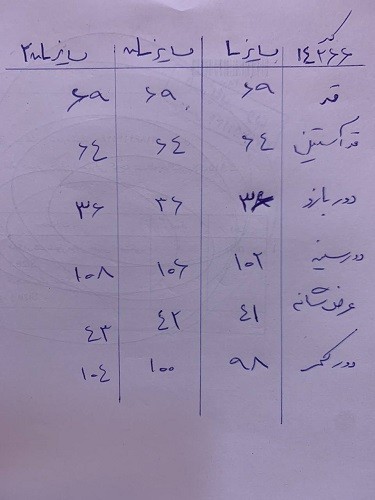 کد
۱۴۲۶۶ سایز L سایز XL سایز ۲XL
قد ۶۹ ۶۹ ۶۹
قد آستین ۶۴ ۶۴ ۶۴
دور بازو ۳۶ ۳۶ ۳۶
دور سینه ۱۰۲ ۱۰۶ ۱۰۸
عرض شانه ۴۱ ۴۲ ۴۳
دور کمر ۹۸ ۱۰۰ ۱۰۴